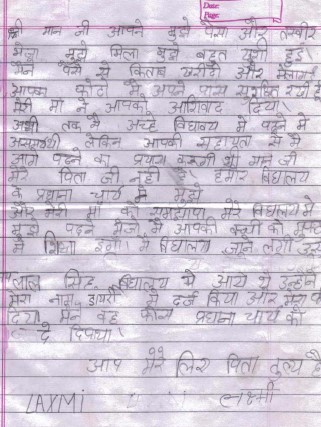 Date:
Page:
श्री मान जी आपने मुझे पैसा और तस्वीर
भेजा मुझे मिला मुझे बहुत खुशी हुई।
मैंने पैसे से किताब खरीदी और
आपका फोटो मैं अपने पास सुरक्षित रखी हूँ
मेरी माँ ने आपको आशिवाद दिया।
अभी तक मैं अच्छे विद्यालय में पढ़ने में
असमर्थ थी लेकिन आपकी सहायता से मैं
आगे पढ़ने का प्रयास करूंगी श्री मान जी
मेरे पिता जी नहीं हैं। हमारे विद्यालय
के प्रधाना चार्य ने मुझे
और मेरी माँ को समझाया मेरे विद्यालय में
मुझे पढ़ने भेजो मैं आपकी बच्ची को मुफ्त
में शिक्षा दूंगा। मैं विद्यालय जाने लगी
लाल सिंह विद्यालय में आये थे उन्होंने
मेरा नाम डायरी में दर्ज किया और मेरा
दिया मैंने वह प्रधाना चार्य को
दे दिया।
आप मेरे लिए पिता तुल्य हैं
LAXMI लक्ष्मी